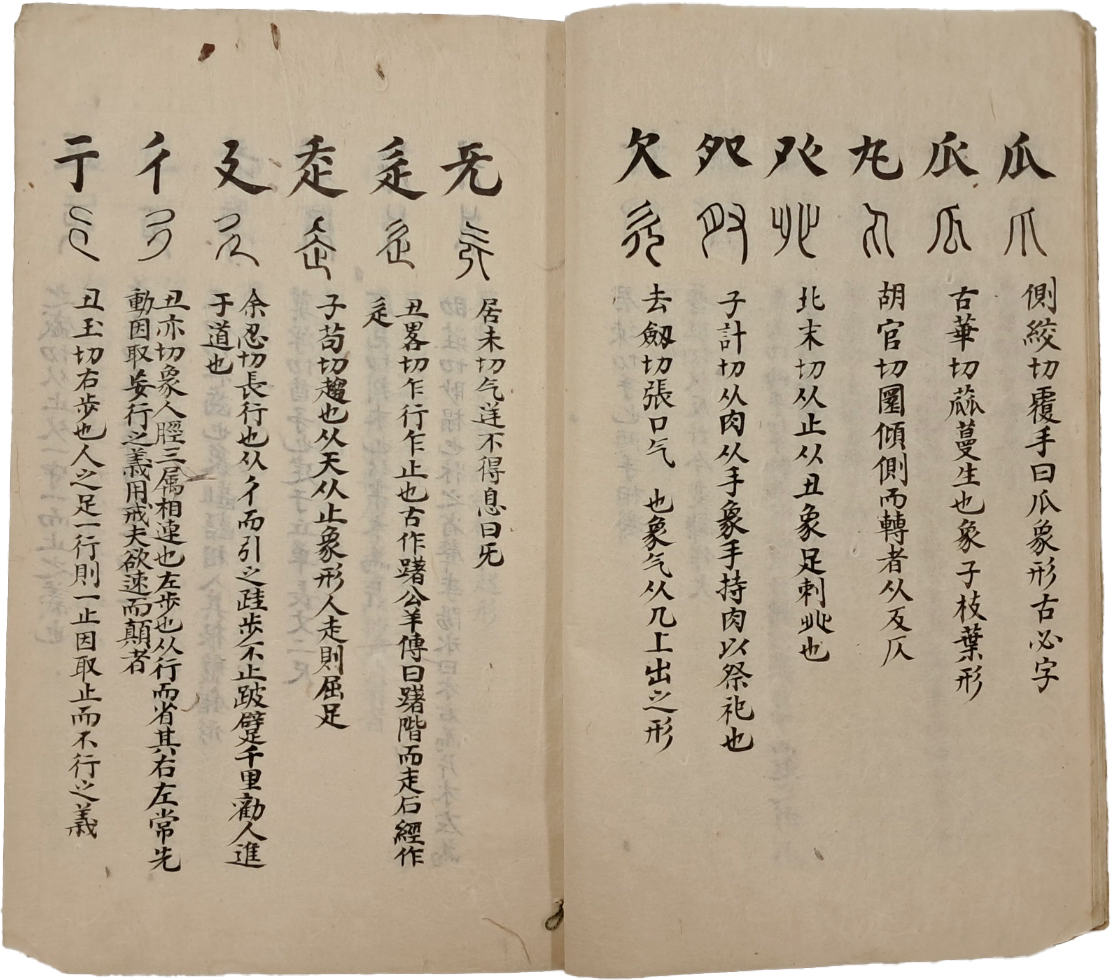 爪
側絞切覆手曰爪象形古必字
瓜
古華切蓏蔓生也象子枝葉形
丸
胡官切圜傾側而轉者从反仄
癶
北末切从止从丑象足剌癶也
子計切从肉从手象手持肉以祭祀也
欠
去劔切張口气 也象气从几上出之形
旡
居未切气逆不得息曰旡
辵
丑畧切乍行乍止也古作躇公羊傳曰躇階而走石經作
辵
走
子苟切趨也从天从止象形人走則屈足
廴
余忍切長行也从彳而引之跬步不止跛躄千里勸人進
于道也
彳
丑亦切象人脛三属相連也左步也从行而省其右左常先
動因取妄行之義用戒夫欲速而顛者
亍
丑玉切右步也人之足一行則一止因取止而不行之義